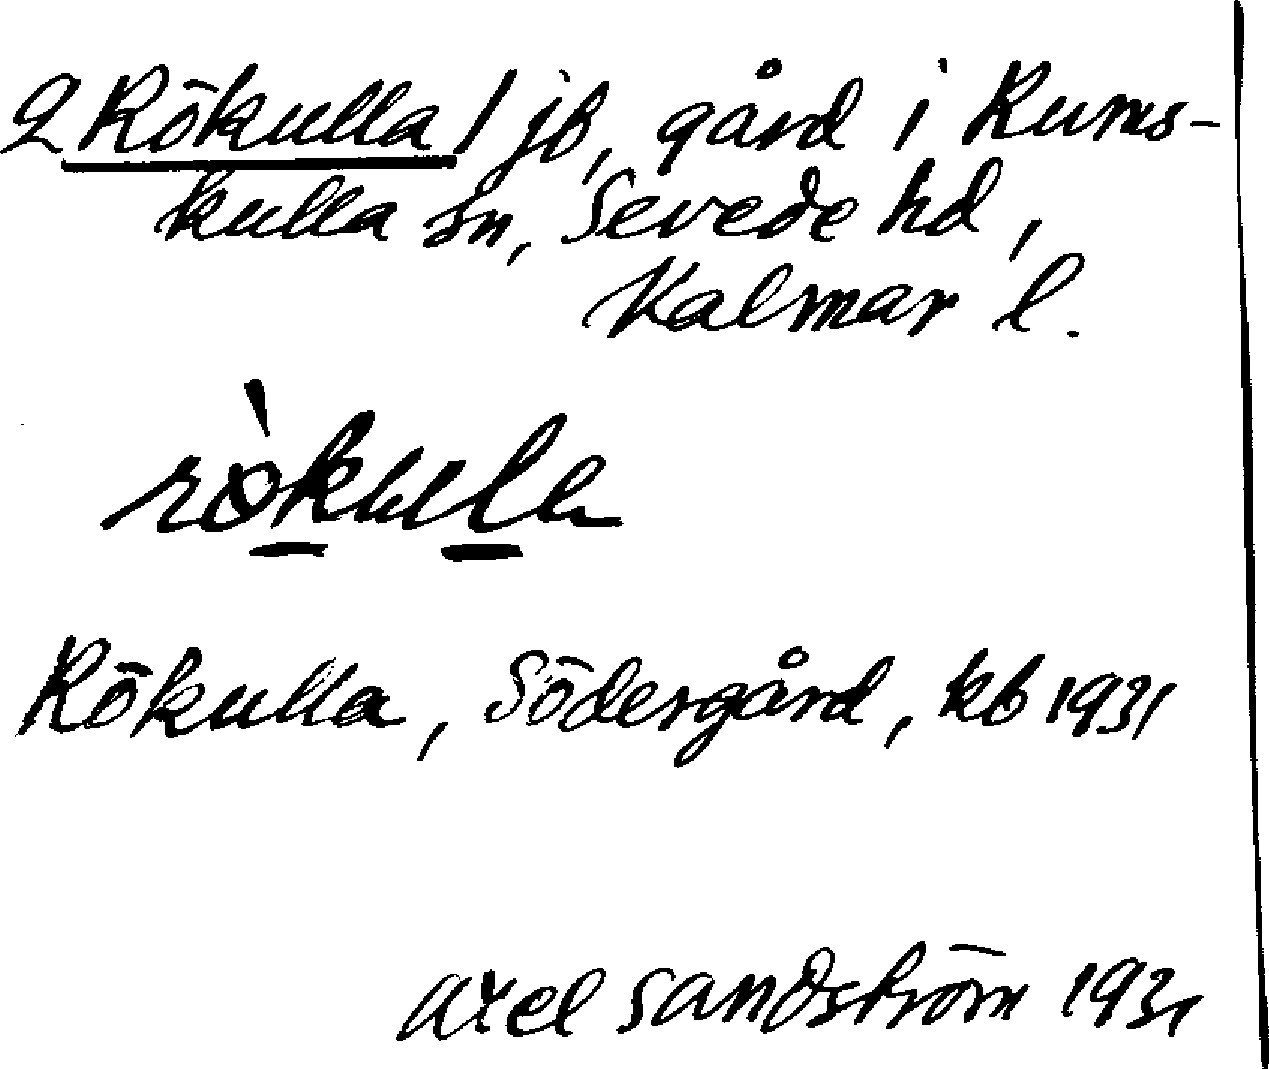 2 Rökulla 1 jb, gård i Rums-
kulla sn, Sevede hd,
Kalmar l.
rö̀kula
Rökulla, Södergård, kb 1931
Axel Sandström 1931